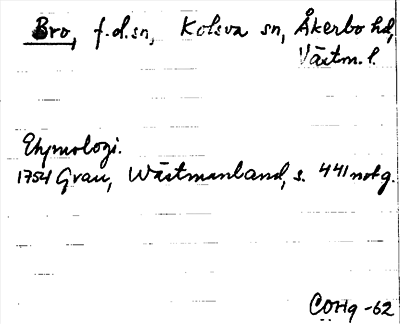 Bro, f.d.sn, Kolsva sn, Åkerbo hd,
Västm.l.
Etymologi.
1754 Grau, Wästmanland, s. 441 not g.
COHg -62